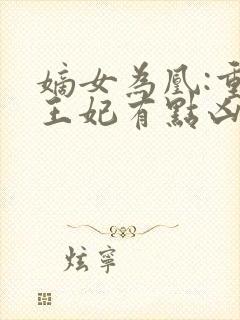 嫡女為凰:重
王妃有點凶
炫寧